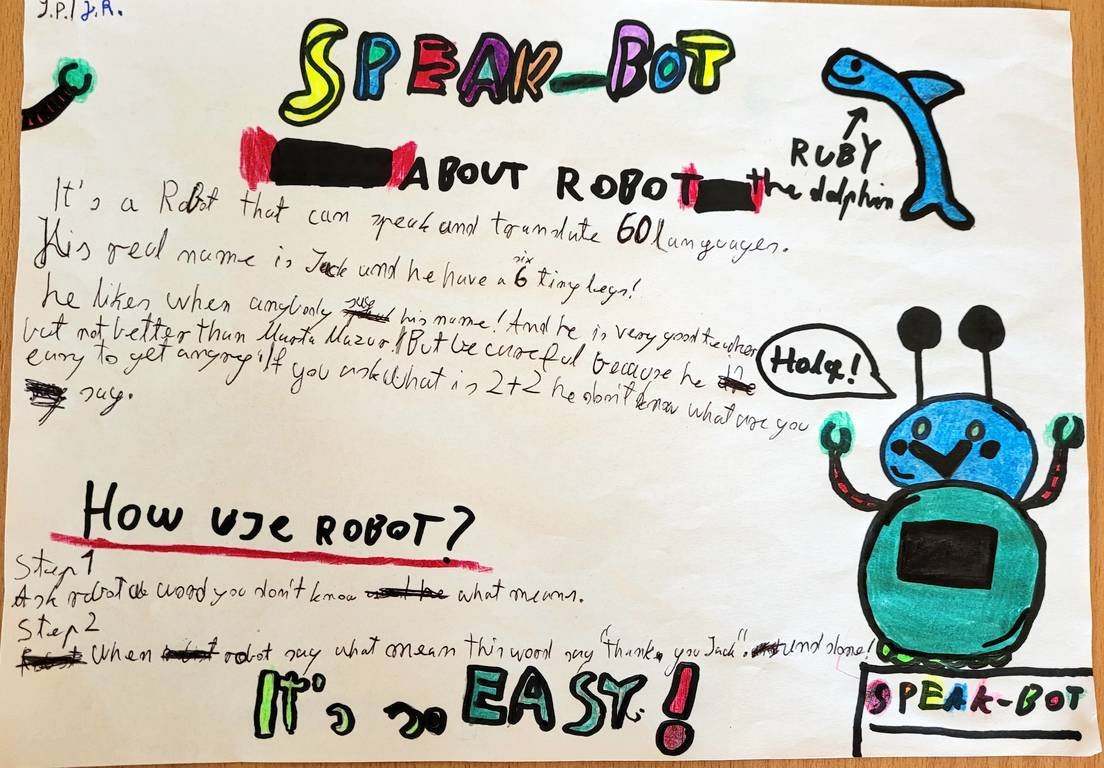 J.P./J.R.
SPEAK-BOT
ABOUT ROBOT
RUBY
the dolphin
It's a Robot that can speak and translate 60 languages.
His real name is Jack and he have a 6 six tiny legs!
he likes when anybody says his name! And he is very good teacher
but not better than Marta Mazur! But be careful because he
easy to get angry! If you ask what is 2+2 he don't know what are you
say.
Hola!
How use ROBOT?
Step 1
Ask robot a word you don't know what means.
Step 2
When robot say what mean this word say "Thank you Jack". and done!
IT's so EASY!
SPEAK-BOT